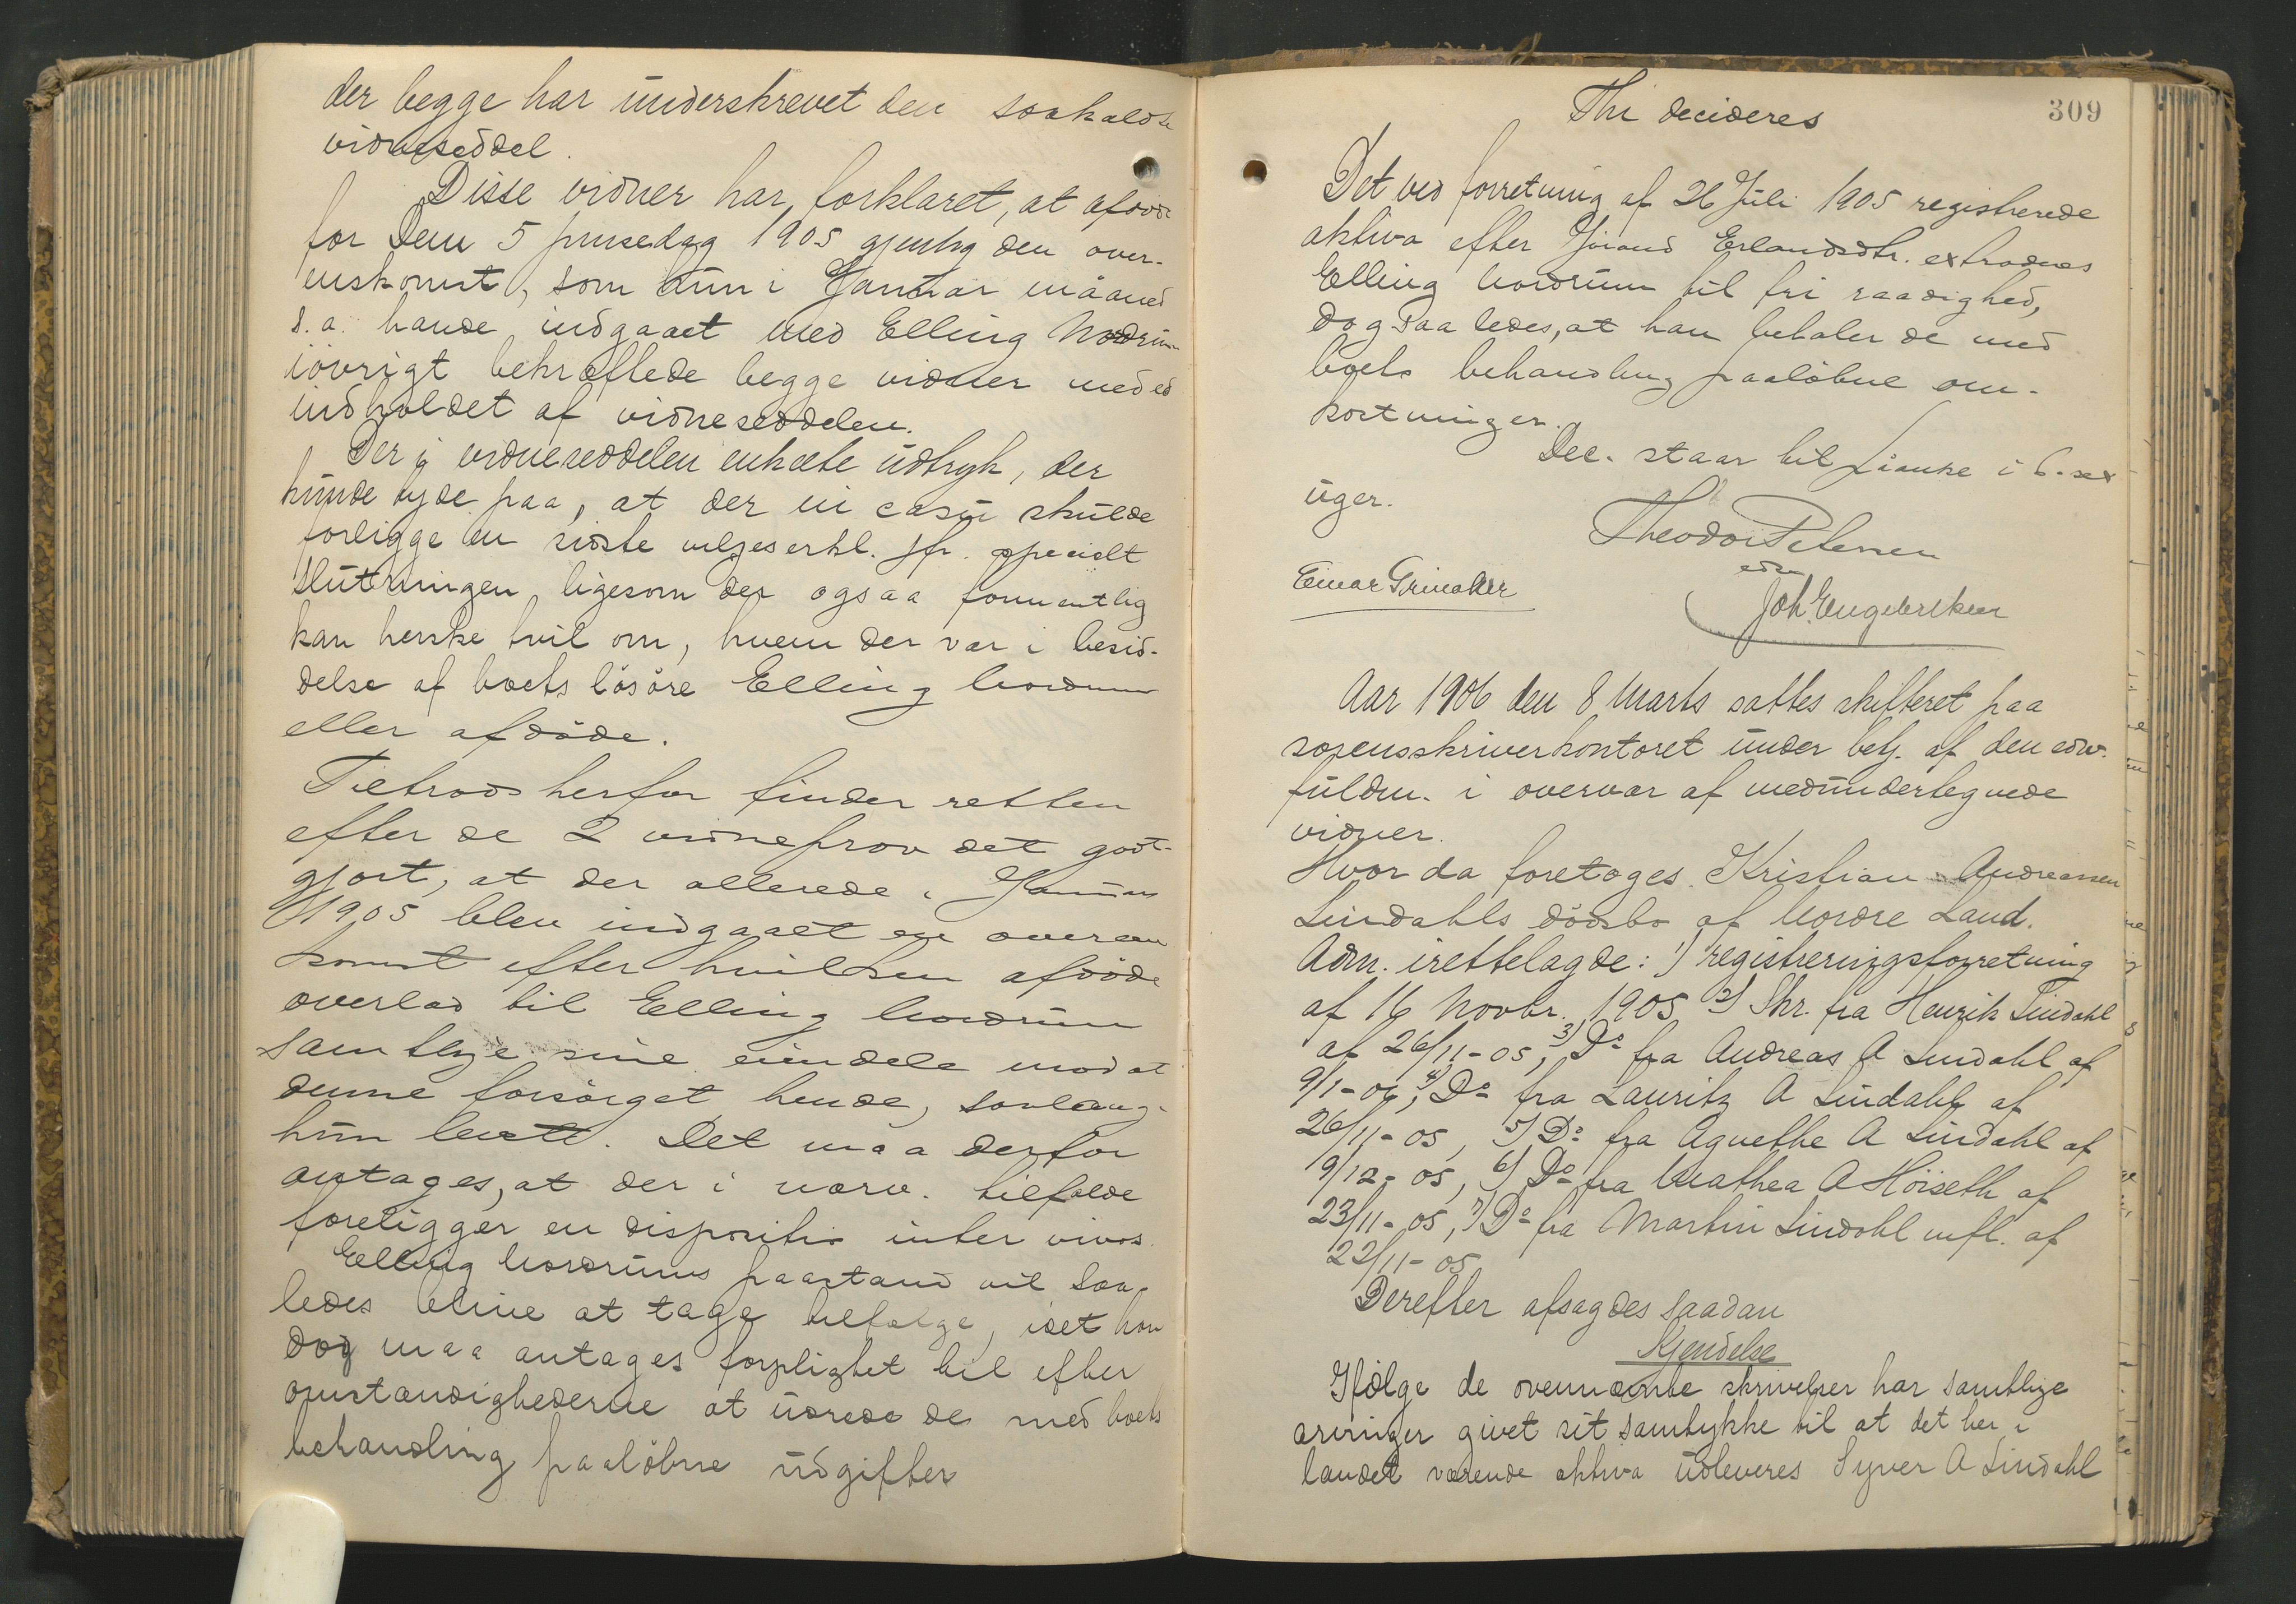 der begge har underskrevet den saakaldte
vidneseddel.
Disse vidner har forklaret, at afdøde
før Dem 5 pinsedag 1905 gjentog den over-
enskomst, som hun i Januar måaned
s.a. havde indgaaet med Elling Nordrum
iøvrigt bekræftede begge vidner med ed
indholdet af vidneseddelen.
Der i vidneseddelen enkelte udtryk, der
kunde tyde paa, at der in casu skulde
foreligge en sidste viljeserkl. jfr. specielt
slutningen, ligesom der ogsaa formentlig
kan herske tvil om, hvem der var i besid-
delse af boets løsøre Elling Nordrum
eller afdøde.
Tiltrods herfor finder retten
efter de 2 vidneprov det godt-
gjort, at der allerede i Januar
1905 blev indgaaet en overens
komst efter hvilken afdøde
overlod til Elling Nordrum
samtlige sine eiendele mod at
denne forsørget hende, saalenge
hun levet. Det maa derfor
antages, at der i nærv. tilfælde
foreligger en dispositio inter vivos.
Elling Nordrums paastand vil saa-
ledes blive at tage tilfølge, idet han
dog maa antages forpligtet til efter
omstændighederne at udrede de med boets
behandling paaløbne udgifter
309
Thi decideres
Det ved forretning af 26 Juli 1905 registrerede
aktiva efter Jörand Erlandsdtr. extraderes
Elling Nordrum til fri raadighed,
dog saaledes, at han betaler de med
boets behandling paaløbne om-
kostninger.
Dec. staar til Lianke i 6. sex
uger.
Theodor Petersen
edv
Einar Grinaker
Joh. Engebretsen
Aar 1906 den 8 Marts sattes skifteret paa
sorenskriverkontoret under betj. af den edv.
fuldm. i overvær af medundertegnede
vidner.
Hvor da foretoges Kristian Andreassen
Lindahls dødsbo af Nordre Land.
Adm. irettelagde: 1) registreringsforretning
af 16 Novbr. 1905 2) Skr. fra Henrik Lindahl
af 26/11-05, 3) Do fra Andreas A Lindahl af
9/1-06, 4) Do fra Lauritz A Lindahl af
26/11-05, 5) Do fra Agnethe A Lindahl af
9/12-05, 6) Do fra Mathea A Höiseth af
23/11-05, 7) Do fra Martin Lindahl mfl. af
22/11-05
Derefter afsagdes saadan
Kjendelse
Ifølge de ovennævnte skrivelser har samtlige
arvinger givet sit samtykke til at det her i
landet værende aktiva udleveres Syver A Lindahl